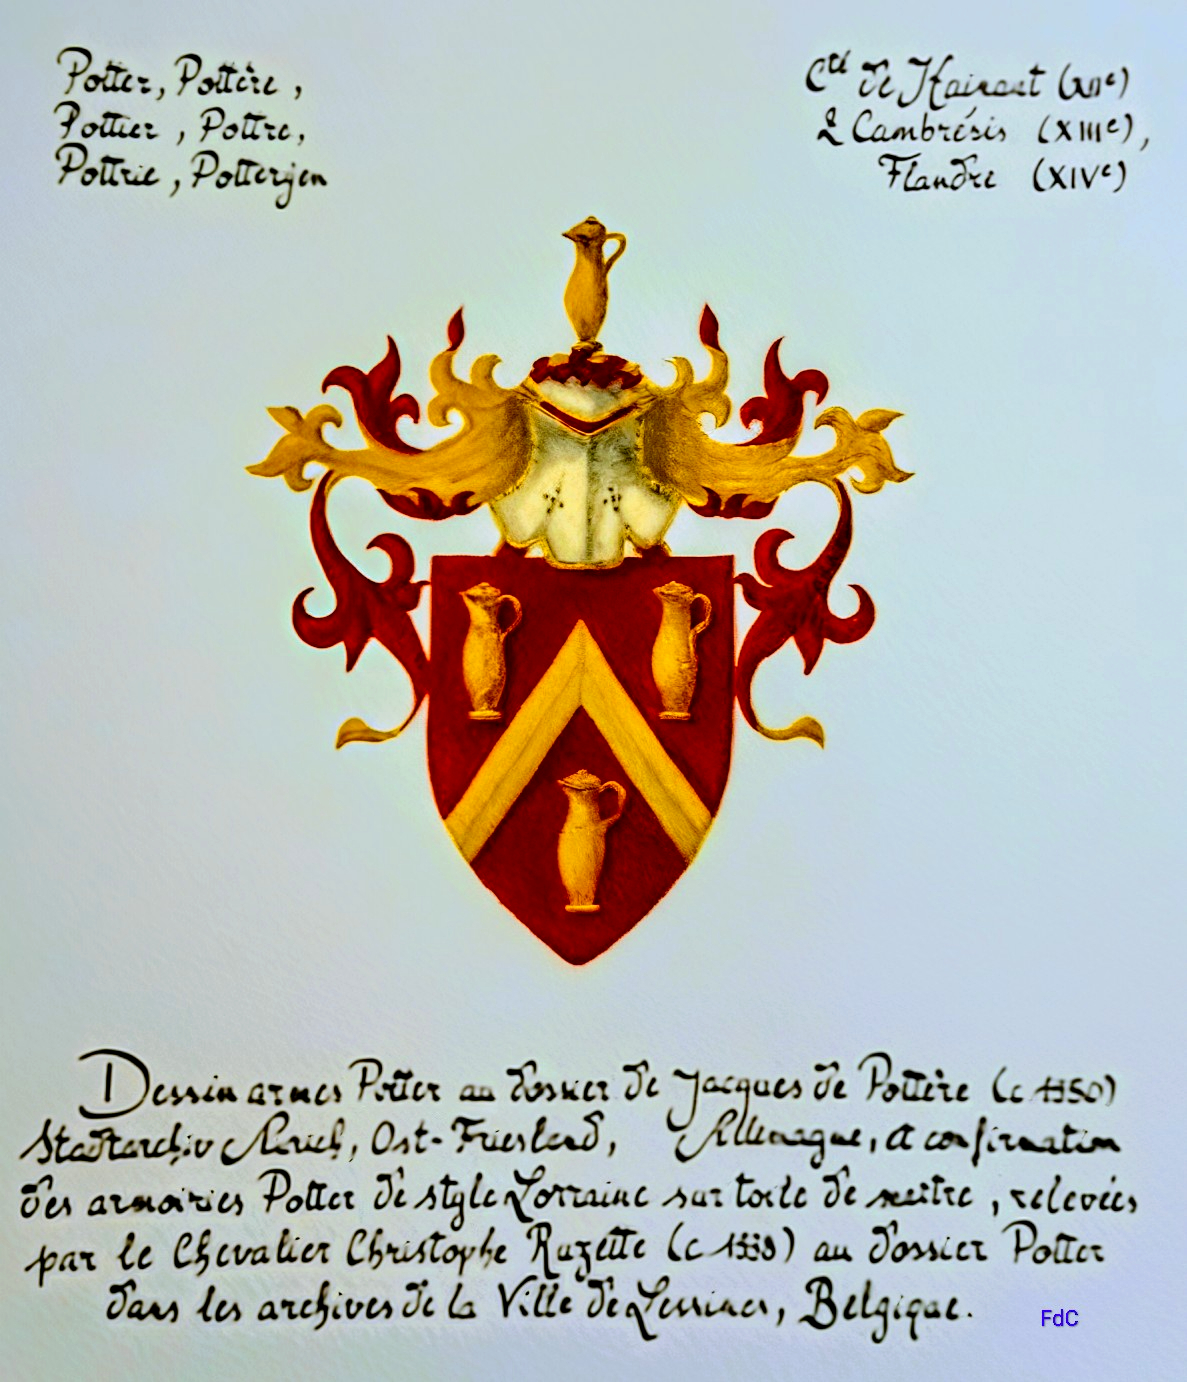 Potter, Pottère,
Pottier, Pottre,
Pottrie, Potterjen
Cté de Hainaut (XIIe)
& Cambrésis (XIIIe),
Flandre (XIVe)
Dessin armes Potter au dossier de Jacques de Pottère (c 1550)
Stadtarchiv Aurich, Ost-Friesland, Allemagne, et confirmation
des armoiries Potter de style Lorraine sur toile de maître, relevées
par le Chevalier Christophe Razette (c 1558) au dossier Potter
dans les archives de la Ville de Lessines, Belgique.
FdC